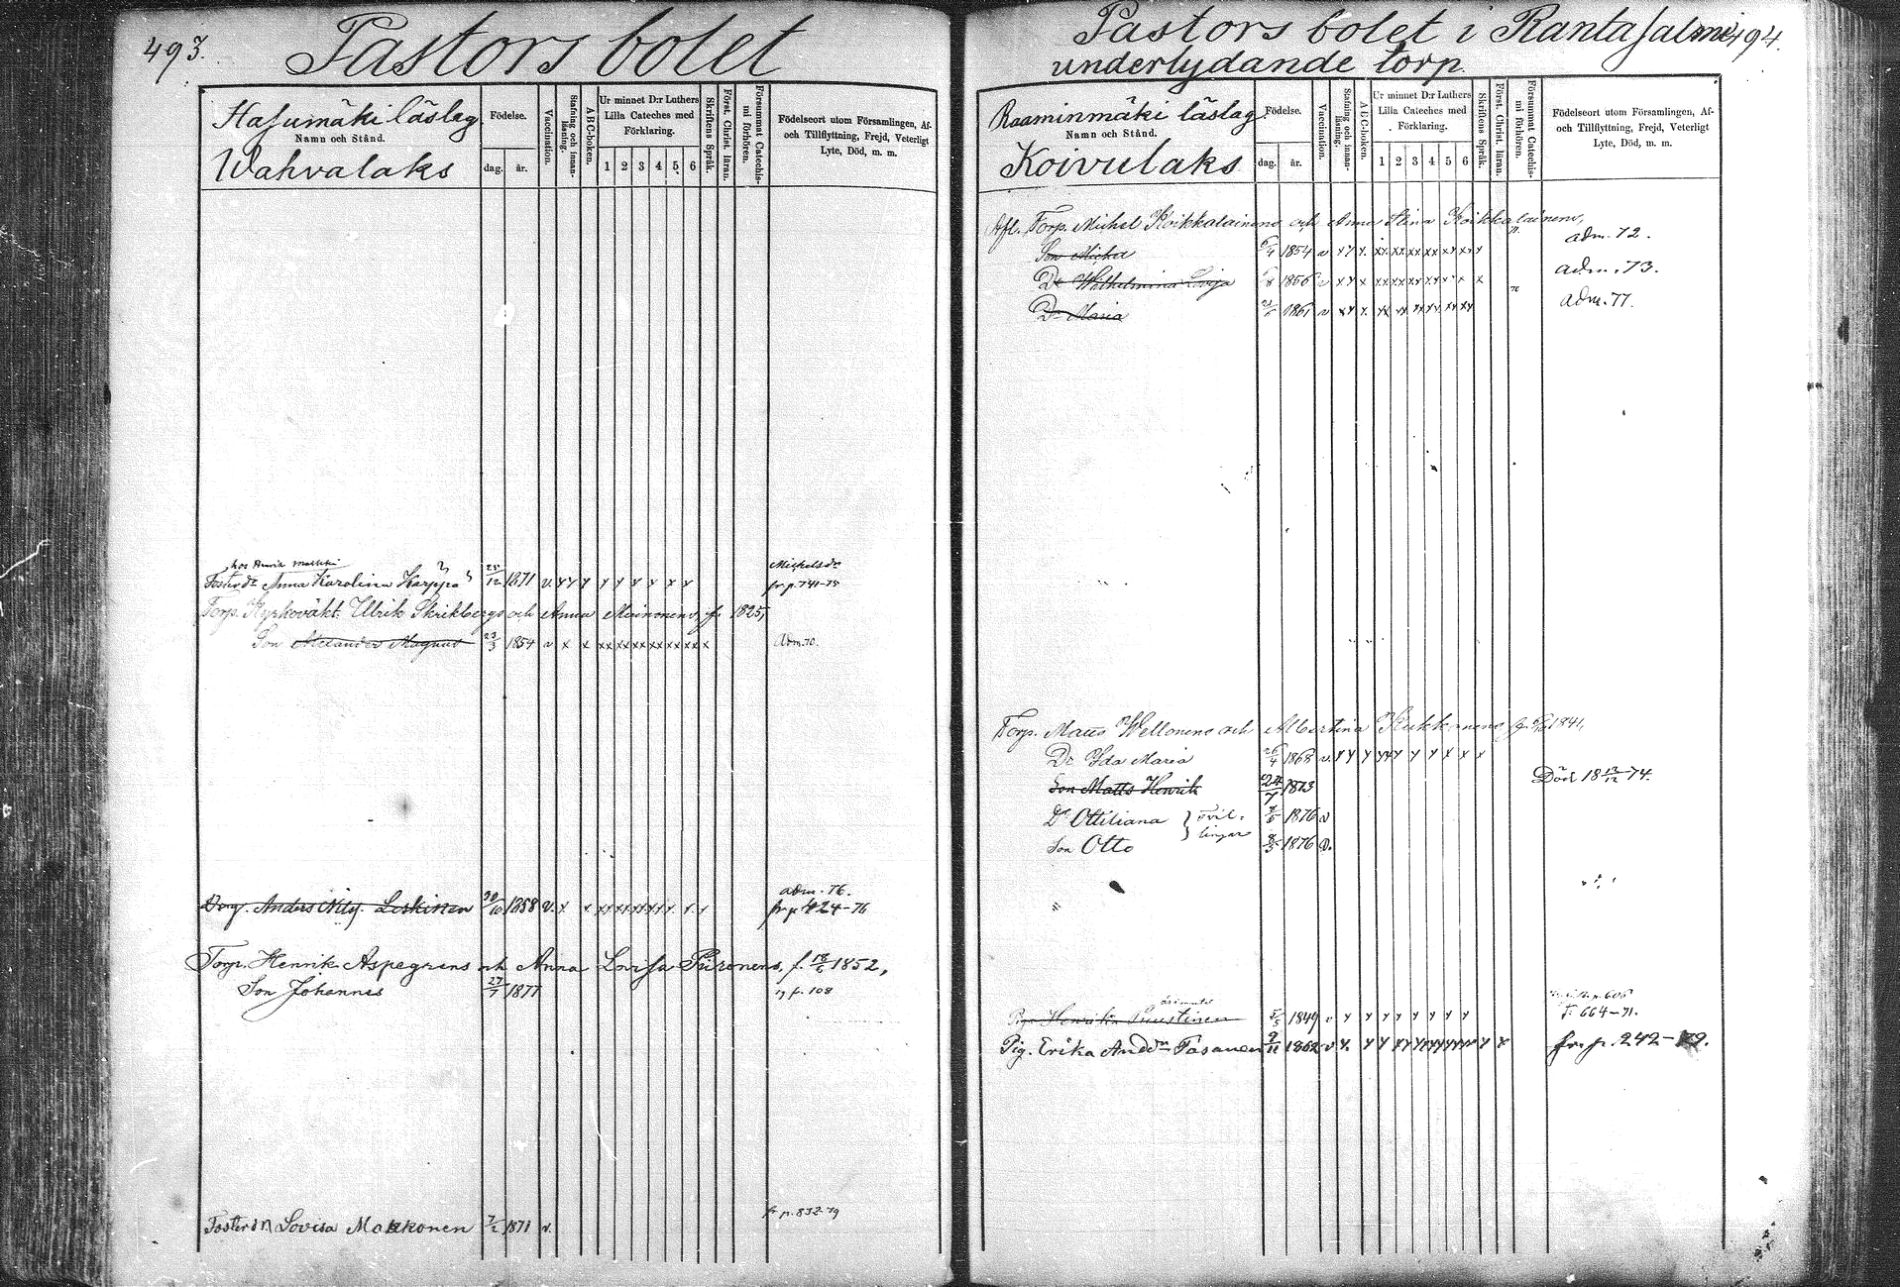 493.
Pastors bolet
Hasumäki läslag
Namn och Stånd.
Wahvalaks
Födelse.
dag.
år.
Vaccination.
Stafning och innan-läsning.
ABC-boken.
Ur minnet D:r Luthers
Lilla Cateches med
Förklaring.
1 2 3 4 5 6
Skriftens Språk.
Först. Christ. läran.
Försummat Catechis-mi förhören.
Födelseort utom Församlingen, Af-
och Tillflyttning, Frejd, Veterligt
Lyte, Död, m. m.
Fosterdr Anna Karolina Karppa 25/12 1871 v. fr. p. 741-75
Torp. Kyrkoväkt. Ulrik Skrikbergs och Anna Moinonens, f. 1825,
Son Alexander Magnus 23/3 1854 v x x xx xx xx xx xx xx x Adm. 70.
adm. 76.
Anders Leskinen 30/10 1858 v. x fr p 424-76
Torp. Henrik Aspegrens och Anna Lovisa Piironens, f. 18/6 1852,
Son Johannes 27/7 1877
Fosterdr Lovisa Makkonen 7/2 1871 v. fr p. 832-79
Pastors bolet i Rantasalmi 494.
underlydande torp.
Raaminmäki läslag
Namn och Stånd.
Koivulaks
Födelse.
dag.
år.
Vaccination.
Stafning och innan-läsning.
ABC-boken.
Ur minnet D:r Luthers
Lilla Cateches med
Förklaring.
1 2 3 4 5 6
Skriftens Språk.
Först. Christ. läran.
Försummat Catechis-mi förhören.
Födelseort utom Församlingen, Af-
och Tillflyttning, Frejd, Veterligt
Lyte, Död, m. m.
Afl. Torp. Michel Koikkalainens och Anna Stina Koikkalainens,
Son Michel 6/4 1854 v x x x. xx. xx xx xx xx xx x adm. 72.
Dr Wilhelmina Lovisa 1856 v x x x adm. 73.
Dr Maria 1861 v x x x. adm. 77.
Torp. Matts Wellonens och Albertina Kukkonens, 1841,
Dr Ida Maria 26/4 1868 v.
Son Matts Henrik 24/7 1873 Död 18 13/12 74.
Dr Ottiliana } tvil- 1876 v
Son Otto } lingar 1876 v.
Henrika Puustinen 1849 v Fr. 664-71.
Pig. Erika Anddr Tasanen 9/11 1862 v fr. p. 242-79.